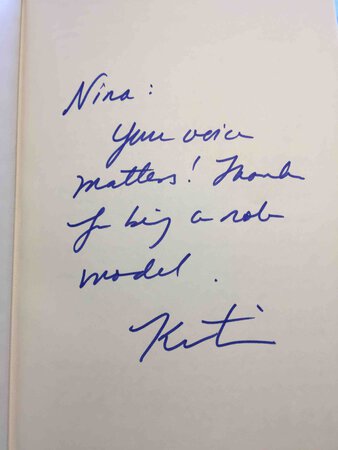 Nina:
Your voice
matters! Thanks
for being a role
model.